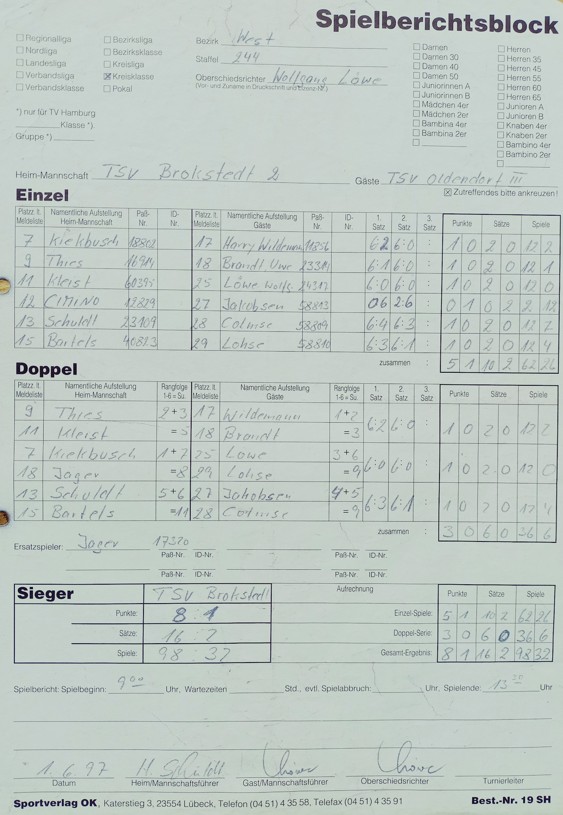 Spielberichtsblock
☐ Regionalliga ☐ Bezirksliga
☐ Nordliga ☐ Bezirksklasse
☐ Landesliga ☐ Kreisliga
☐ Verbandsliga ☒ Kreisklasse
☐ Verbandsklasse ☐ Pokal
*) nur für TV Hamburg
Klasse *)
Gruppe *)
Bezirk West
Staffel 244
Oberschiedsrichter Wolfgang Löwe
☐ Damen ☐ Herren
☐ Damen 30 ☐ Herren 35
☐ Damen 40 ☐ Herren 45
☐ Damen 50 ☐ Herren 55
☐ Juniorinnen A ☐ Herren 60
☐ Juniorinnen B ☐ Herren 65
☐ Mädchen 4er ☐ Junioren A
☐ Mädchen 2er ☐ Junioren B
☐ Bambina 4er ☐ Knaben 4er
☐ Bambina 2er ☐ Knaben 2er
☐ ☐ Bambino 4er
☐ Bambino 2er
☐
Heim-Mannschaft TSV Brokstedt 2 Gäste TSV Oldendorf III
☒ Zutreffendes bitte ankreuzen!
Einzel
Platzz. lt. Meldeliste Namentliche Aufstellung Heim-Mannschaft Paß-Nr. ID-Nr. Platzz. lt. Meldeliste Namentliche Aufstellung Gäste Paß-Nr. ID-Nr. 1. Satz 2. Satz 3. Satz Punkte Sätze Spiele
7 Kiekbusch 17 Harry Wildemann 6:2 6:0 : 1 0 2 0 12 2
9 Thies 18 Brandt Uwe 6:1 6:0 : 1 0 2 0 12 1
11 Kleist 25 Löwe Wolfg. 6:0 6:0 : 1 0 2 0 12 0
12 CIMINO 27 Jakobsen 58813 0 6 2:6 : 0 1 0 2 2 12
13 Schuldt 23109 28 Colmise 58809 6:4 6:3 : 1 0 2 0 12 7
15 Bartels 40823 29 Lohse 58810 6:3 6:1 : 1 0 2 0 12 4
zusammen : 5 1 10 2 62 26
Doppel
Platzz. lt. Meldeliste Namentliche Aufstellung Heim-Mannschaft Rangfolge 1-6 = Su. Platzz. lt. Meldeliste Namentliche Aufstellung Gäste Rangfolge 1-6 = Su. 1. Satz 2. Satz 3. Satz Punkte Sätze Spiele
9 Thies 2+3 17 Wildemann 1+2
11 Kleist =5 18 Brandt =3 6:2 6:0 : 1 0 2 0 12 2
7 Kiekbusch 1+7 25 Löwe 3+6
18 Jäger =8 29 Lohse =9 6:0 6:0 : 1 0 2 0 12 0
13 Schuldt 5+6 27 Jakobsen 4+5
15 Bartels =11 28 Colmise =9 6:3 6:1 : 1 0 2 0 12 4
zusammen : 3 0 6 0 36 6
Ersatzspieler: Jäger 17320
Paß-Nr. ID-Nr. Paß-Nr. ID-Nr.
Paß-Nr. ID-Nr. Paß-Nr. ID-Nr.
Sieger TSV Brokstedt
Punkte: 8 : 1
Sätze: 16 : 2
Spiele: 98 : 32
Aufrechnung Punkte Sätze Spiele
Einzel-Spiele: 5 1 10 2 62 26
Doppel-Serie: 3 0 6 0 36 6
Gesamt-Ergebnis: 8 1 16 2 98 32
Spielbericht: Spielbeginn: 9 00 Uhr, Wartezeiten Std., evtl. Spielabbruch: Uhr, Spielende: 13 Uhr
1.6.97 H. Schuldt
Datum Heim/Mannschaftsführer Gast/Mannschaftsführer Oberschiedsrichter Turnierleiter
Sportverlag OK, Katerstieg 3, 23554 Lübeck, Telefon (04 51) 4 35 58, Telefax (04 51) 4 35 91 Best.-Nr. 19 SH